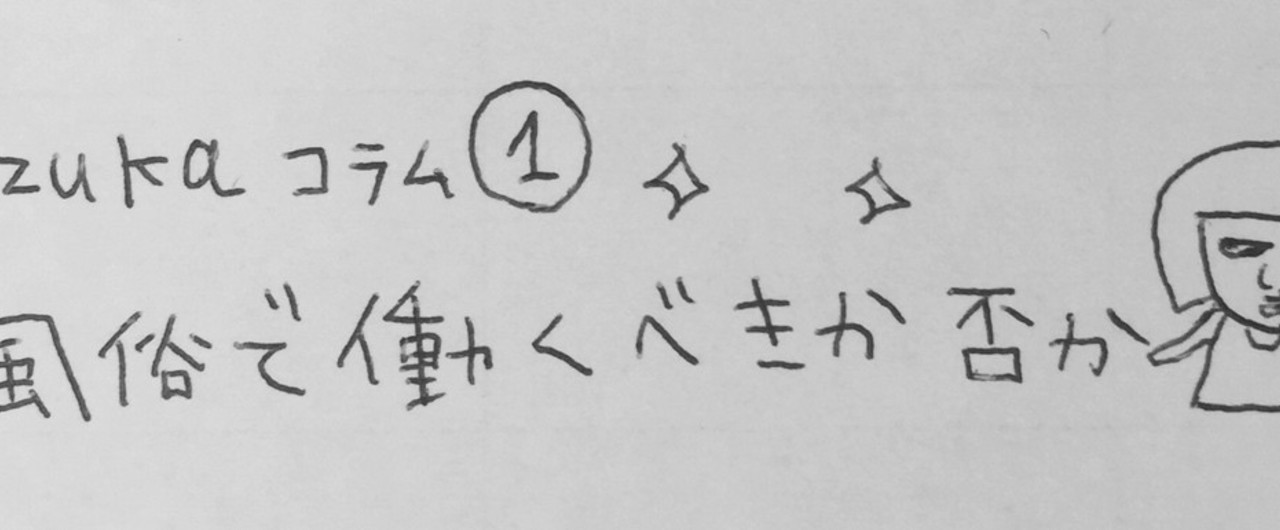 zuka コラム①
風俗で働くべきか否か